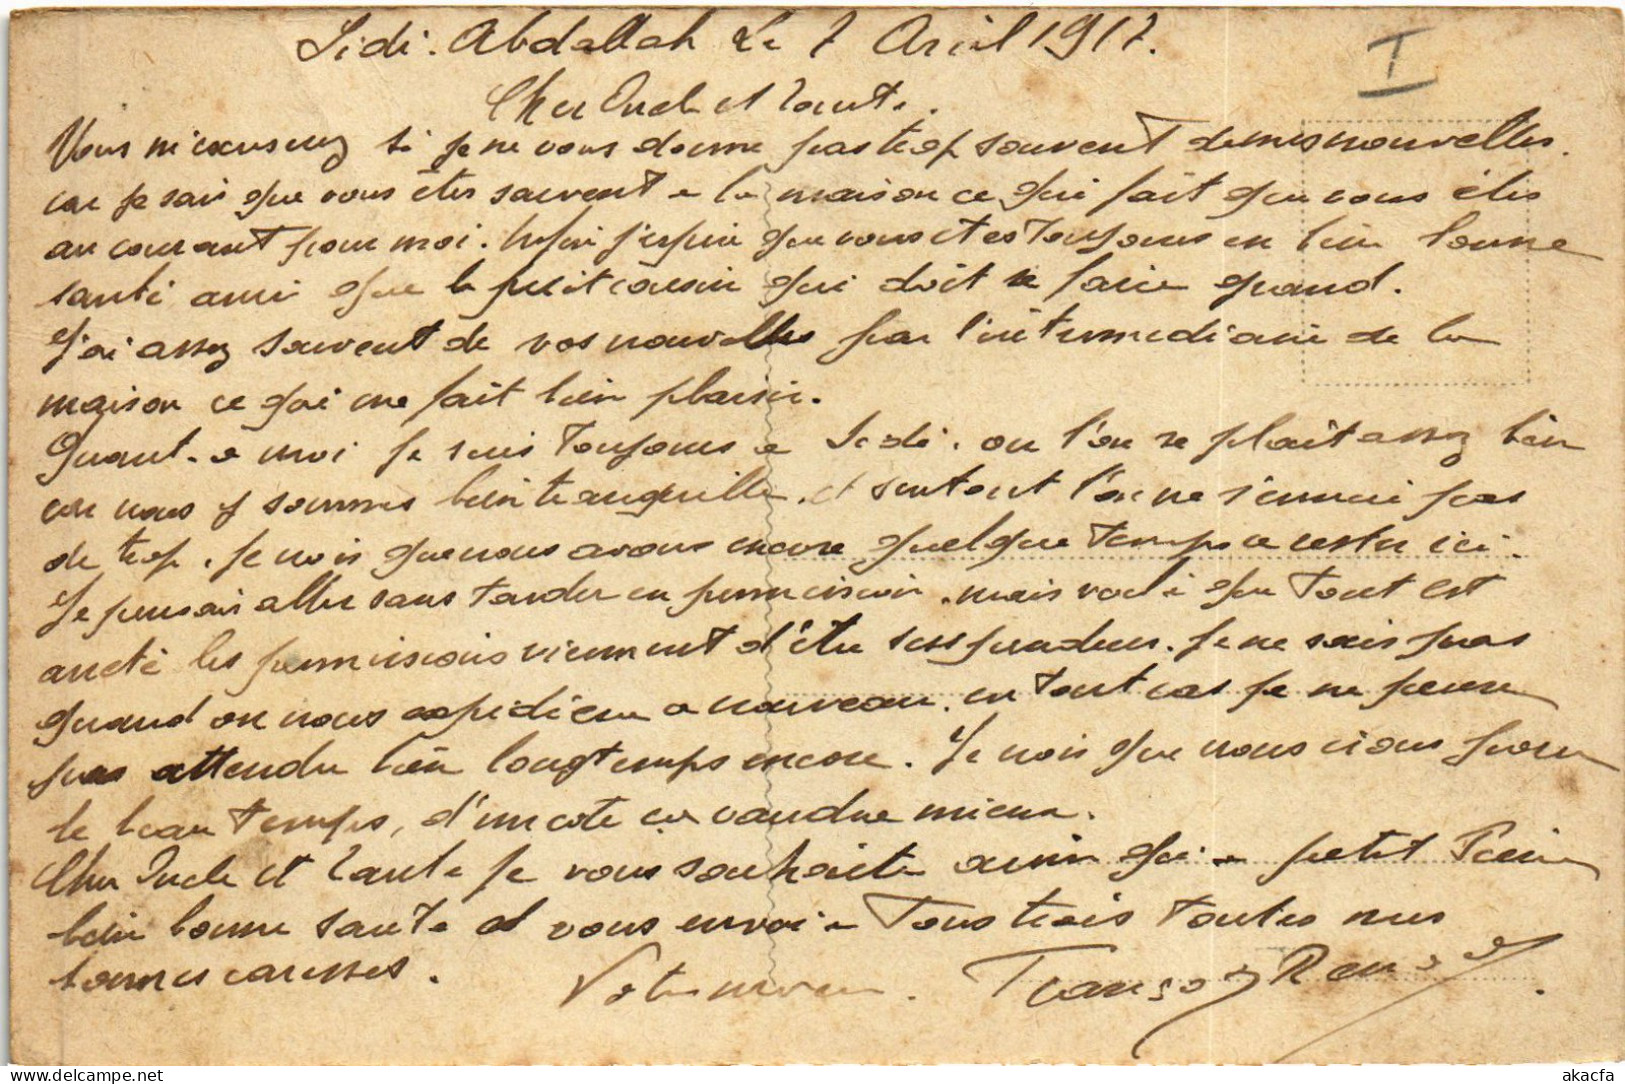 Sidi-Abdallah Le 7 Avril 1917.
I
Cher Oncle et Tante.
Vous m'excuserez si je ne vous donne pas trop souvent de mes nouvelles.
car je sais que vous êtes souvent a la maison ce qui fait que vous êtes
au courant pour moi. Enfin j'espère que vous etes toujours en bien bonne
santé ainsi que le petit cousin qui doit se faire grand.
J'ai assez souvent de vos nouvelles par l'intermediaire de la
maison ce qui me fait bien plaisir.
Quant-a moi je suis toujours a Sidi. ou l'on se plait assez bien
car nous y sommes bien tranquille. et surtout l'on ne s'ennui pas
de trop. je crois que nous avons encore quelque temps a rester ici.
Je pensais aller sans tarder en permission. mais voila que tout est
arreté les permissions viennent d'être suspendues. je ne sais pas
quand on nous expédiera a nouveau. en tout cas je ne peux
pas attendre bien longtemps encore. Je crois que nous irons pour
le beau temps, d'un coté ça vaudra mieux.
Cher Oncle et Tante je vous souhaite ainsi qu'a petit Pierre
bien bonne sante et vous envoie Tous trois toutes mes
bonnes caresses.
Votre neveu. François Renaud
akacfa